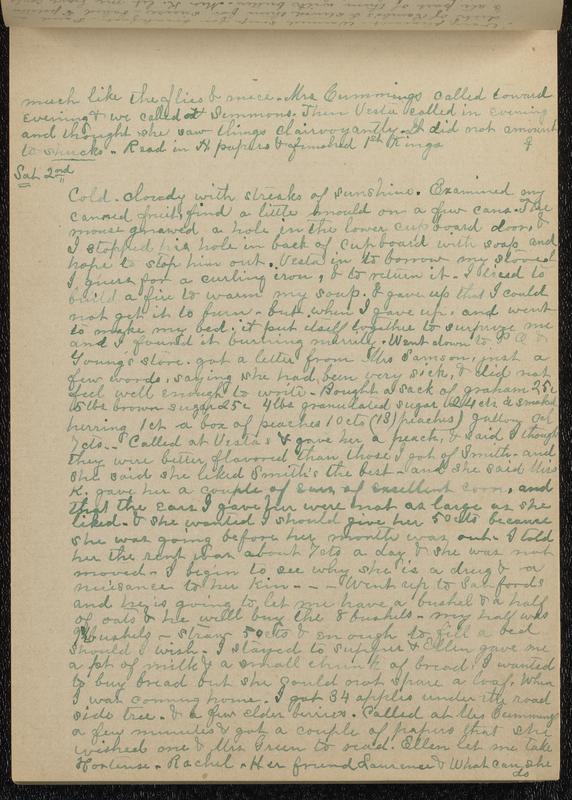 much like the flies & mice. Mrs Cummings called toward
evening & we called at Simmons. Then Vesta called in evening
and thought she saw things clairvoyantly. It did not amount
to shucks. Read in N papers & finished 1st Kings
Sat 2nd
Cold. cloudy with streaks of sunshine. Examined my
canned fruit, find a little mould on a few cans. The
mouse gnawed a hole in the lower cupboard door, &
I stopped his hole in back of cupboard with soap and
hope to stop him out. Vesta in to borrow my shovel
I guess for a curling iron, & to return it. I tried to
build a fire to warm my soup. & gave up that I could
not get it to burn. but when I gave up, and went
to make my bed. it put itself together to surprise me
and I found it burning merrily. Went down to P.O. &
Young's store. got a letter from Mrs Samson, just a
few words, saying she had been very sick, & did not
feel well enough to write. Bought a sack of graham 25c
5 lbs brown sugar 25c 4lbs granulated sugar 24cts a smoked
herring 1ct a box of peaches 10cts (13 peaches) gallon
7cts.. Called at Vesta's & gave her a peach, & said I though
they were better flavored than those I got of Smith. and
she said she liked Smith's the best. and she said Mrs
K. gave her a couple of ears of excellent corn, and
that the ears I gave her were not as large as she
liked. & she wanted I should give her 50cts because
she was going before her month was out. I told
her the rent was about 7cts a day & she was not
moved. I begin to see why she is a drug & a
nuisance to her kin - - - Went up to Sanfords
and he is going to let me have a bushel & a half
of oats & he will buy the 8 bushels. my half was
bushels - straw 50cts & enough to fill a bed
should I wish. I stayed to supper & Ellen gave me
a pt of milk & a small chunk of bread. I wanted
to buy bread but she could not spare a loaf. When
I was coming home. I got 34 apples under the road
side tree. & a few elder berries. Called at Mrs Cummings
a few minutes & got a couple of papers that she
wished one & Mrs Green to read. Ellen let me take
Hortense. Rachel. Her friend Laurence & What can she
do